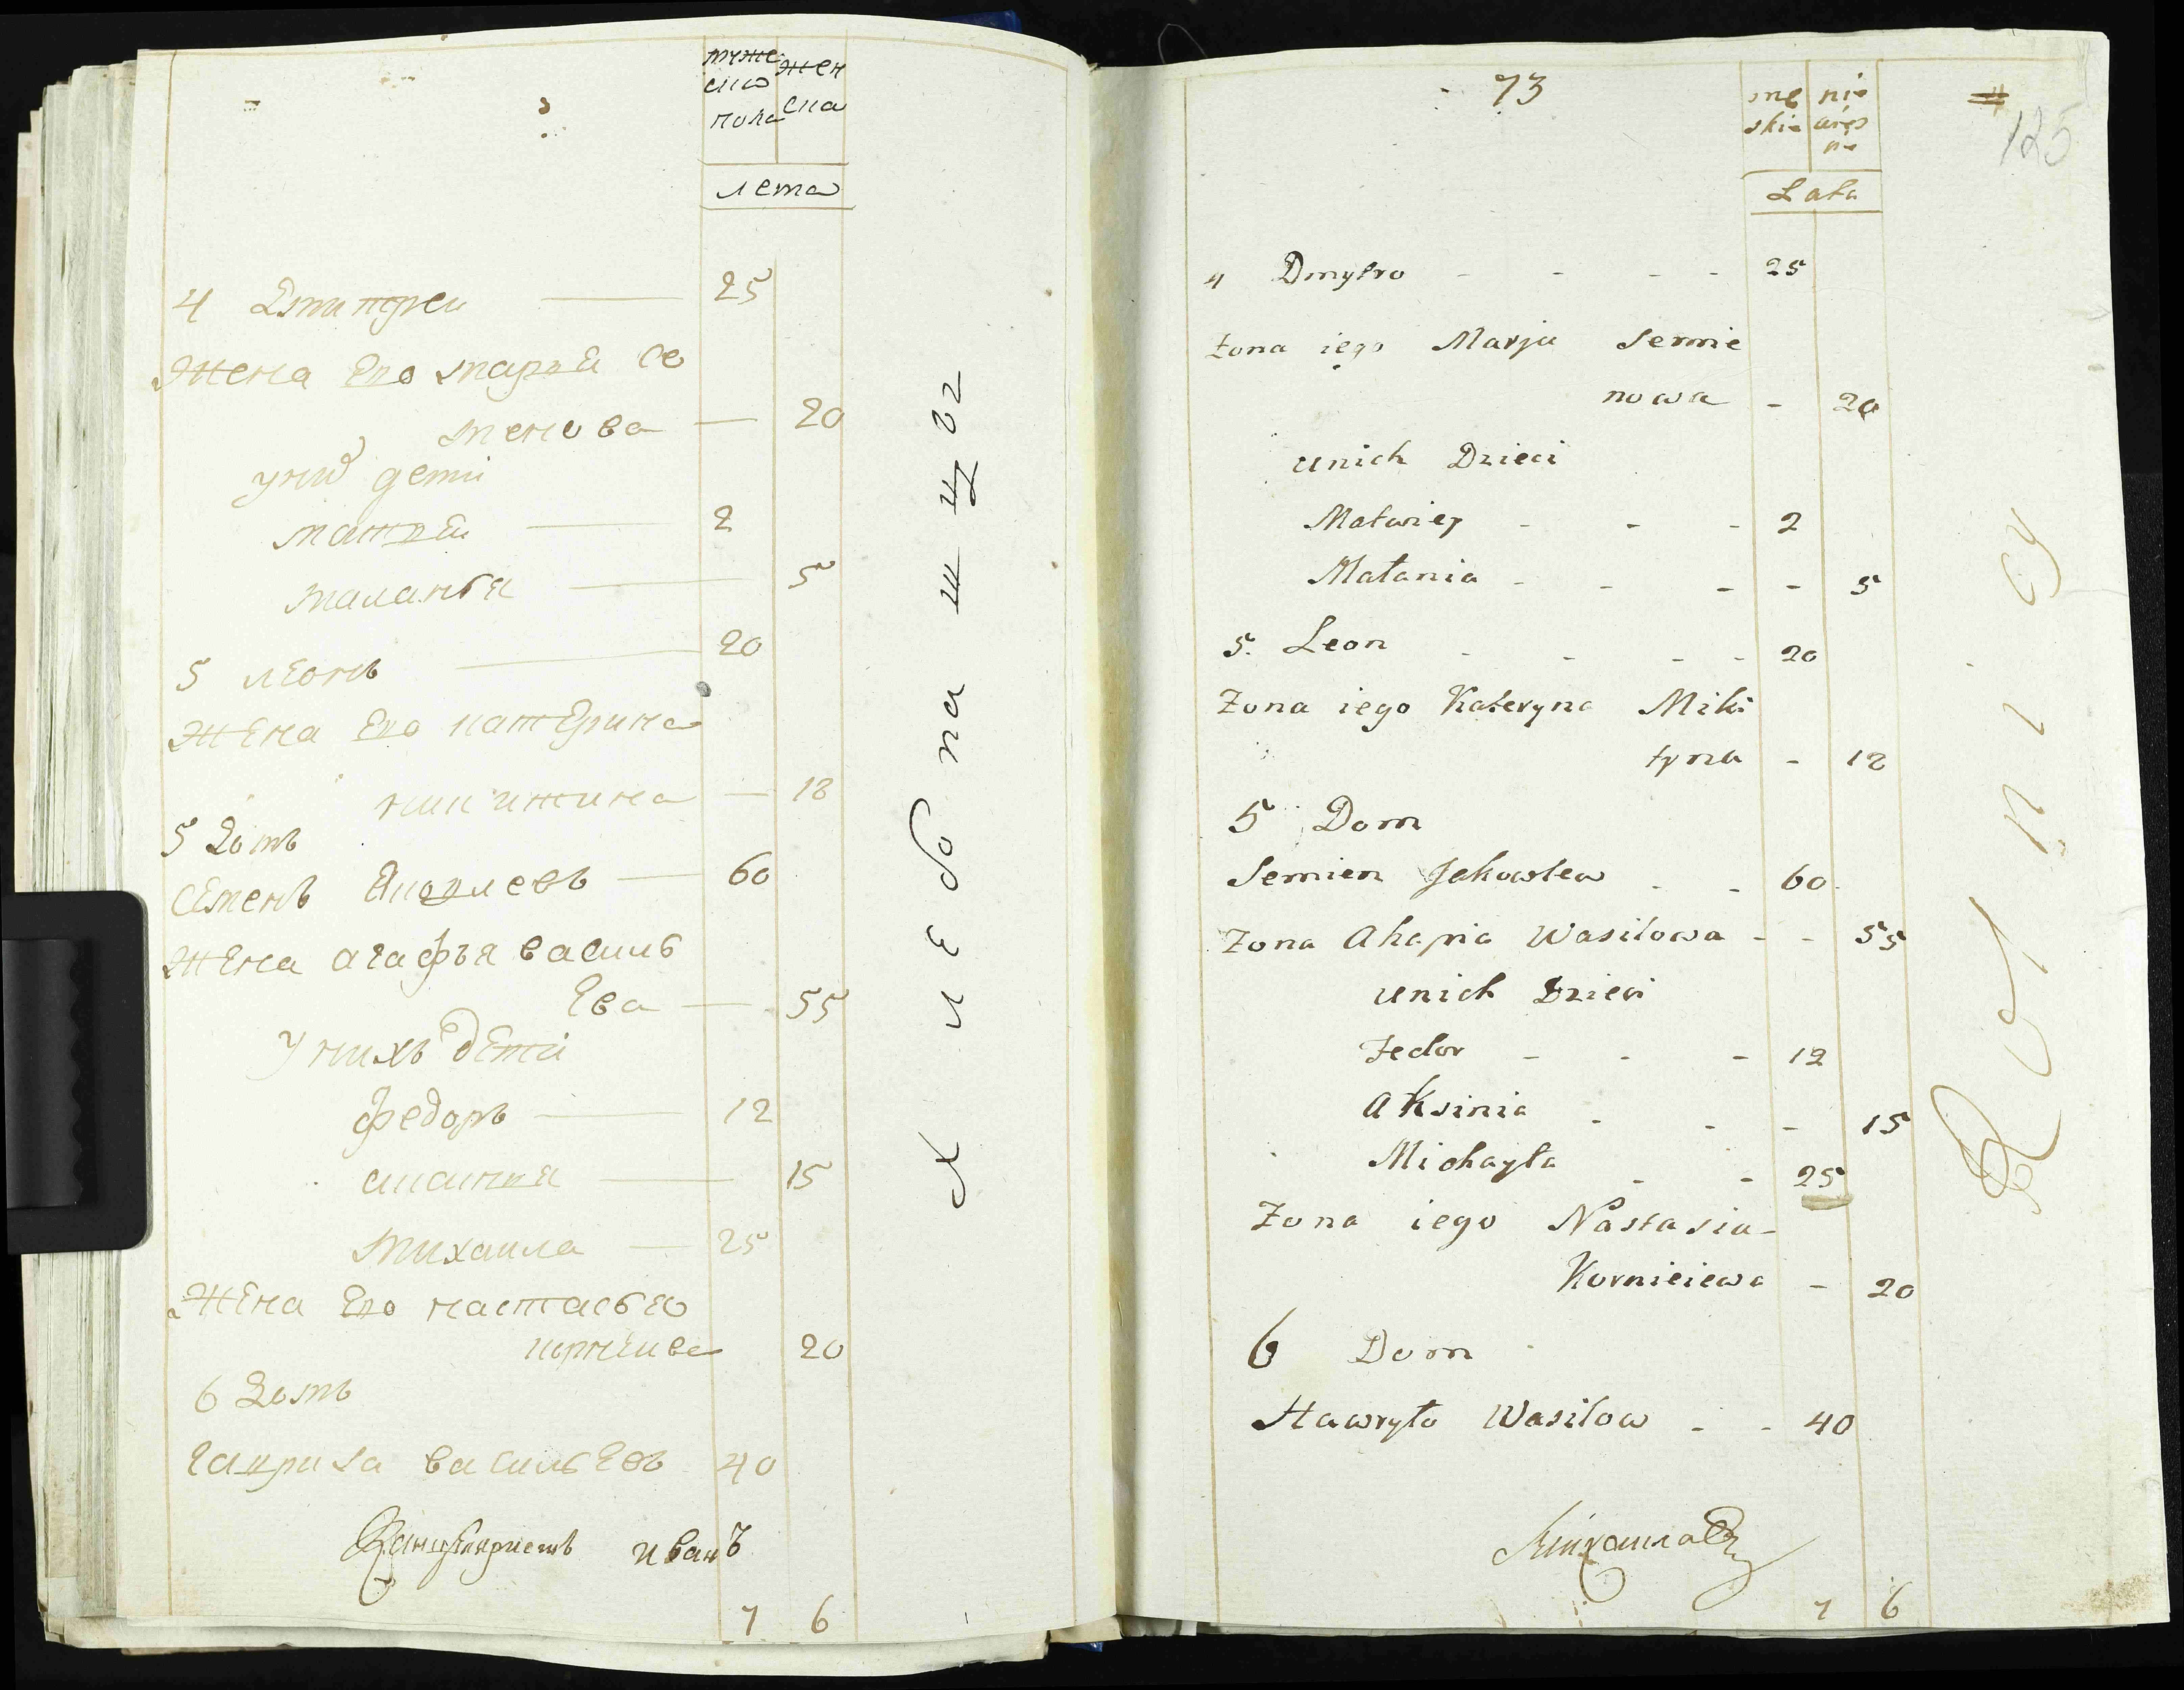 муже жен
ско ска
пола
лета
4 Дмитреи — 25
Жена Его марья Се
менова — 20
у них дети
матвеи — 2
маланья — 5
5 леонъ — 20
Жена Его катерина
микитина — 18
5 Домъ
Семенъ Яковлевъ — 60
Жена агафья василь
Ева — 55
У нихъ дети
федоръ — 12
аксинья — 15
михаила — 25
Жена Его настасья
корнеива 20
6 Домъ
гаврила васильЕвъ 40
иванъ
7 6
Клебпашцог
73
mę nie
skie wieś
cie
Lata
125
4 Dmytro - - - - 25
Żona iego Marja Semie
nowa - 20
unich Dzieci
Matwiey - - - 2
Małania - - - - 5
5. Leon - - - - 20
Żona iego Kateryna Miki
tyna - 18
5 Dom
Semien Jakowlew - - 60
Żona Ahapia Wasilowa - - 55
unich Dzieci
Fedor - - - 12
Aksinia - - - 15
Michayła - - 25
Żona iego Nastasia -
Kornieiewa - 20
6 Dom
Hawryło Wasilow - - 40
Михаила
7 6
Rolnicy